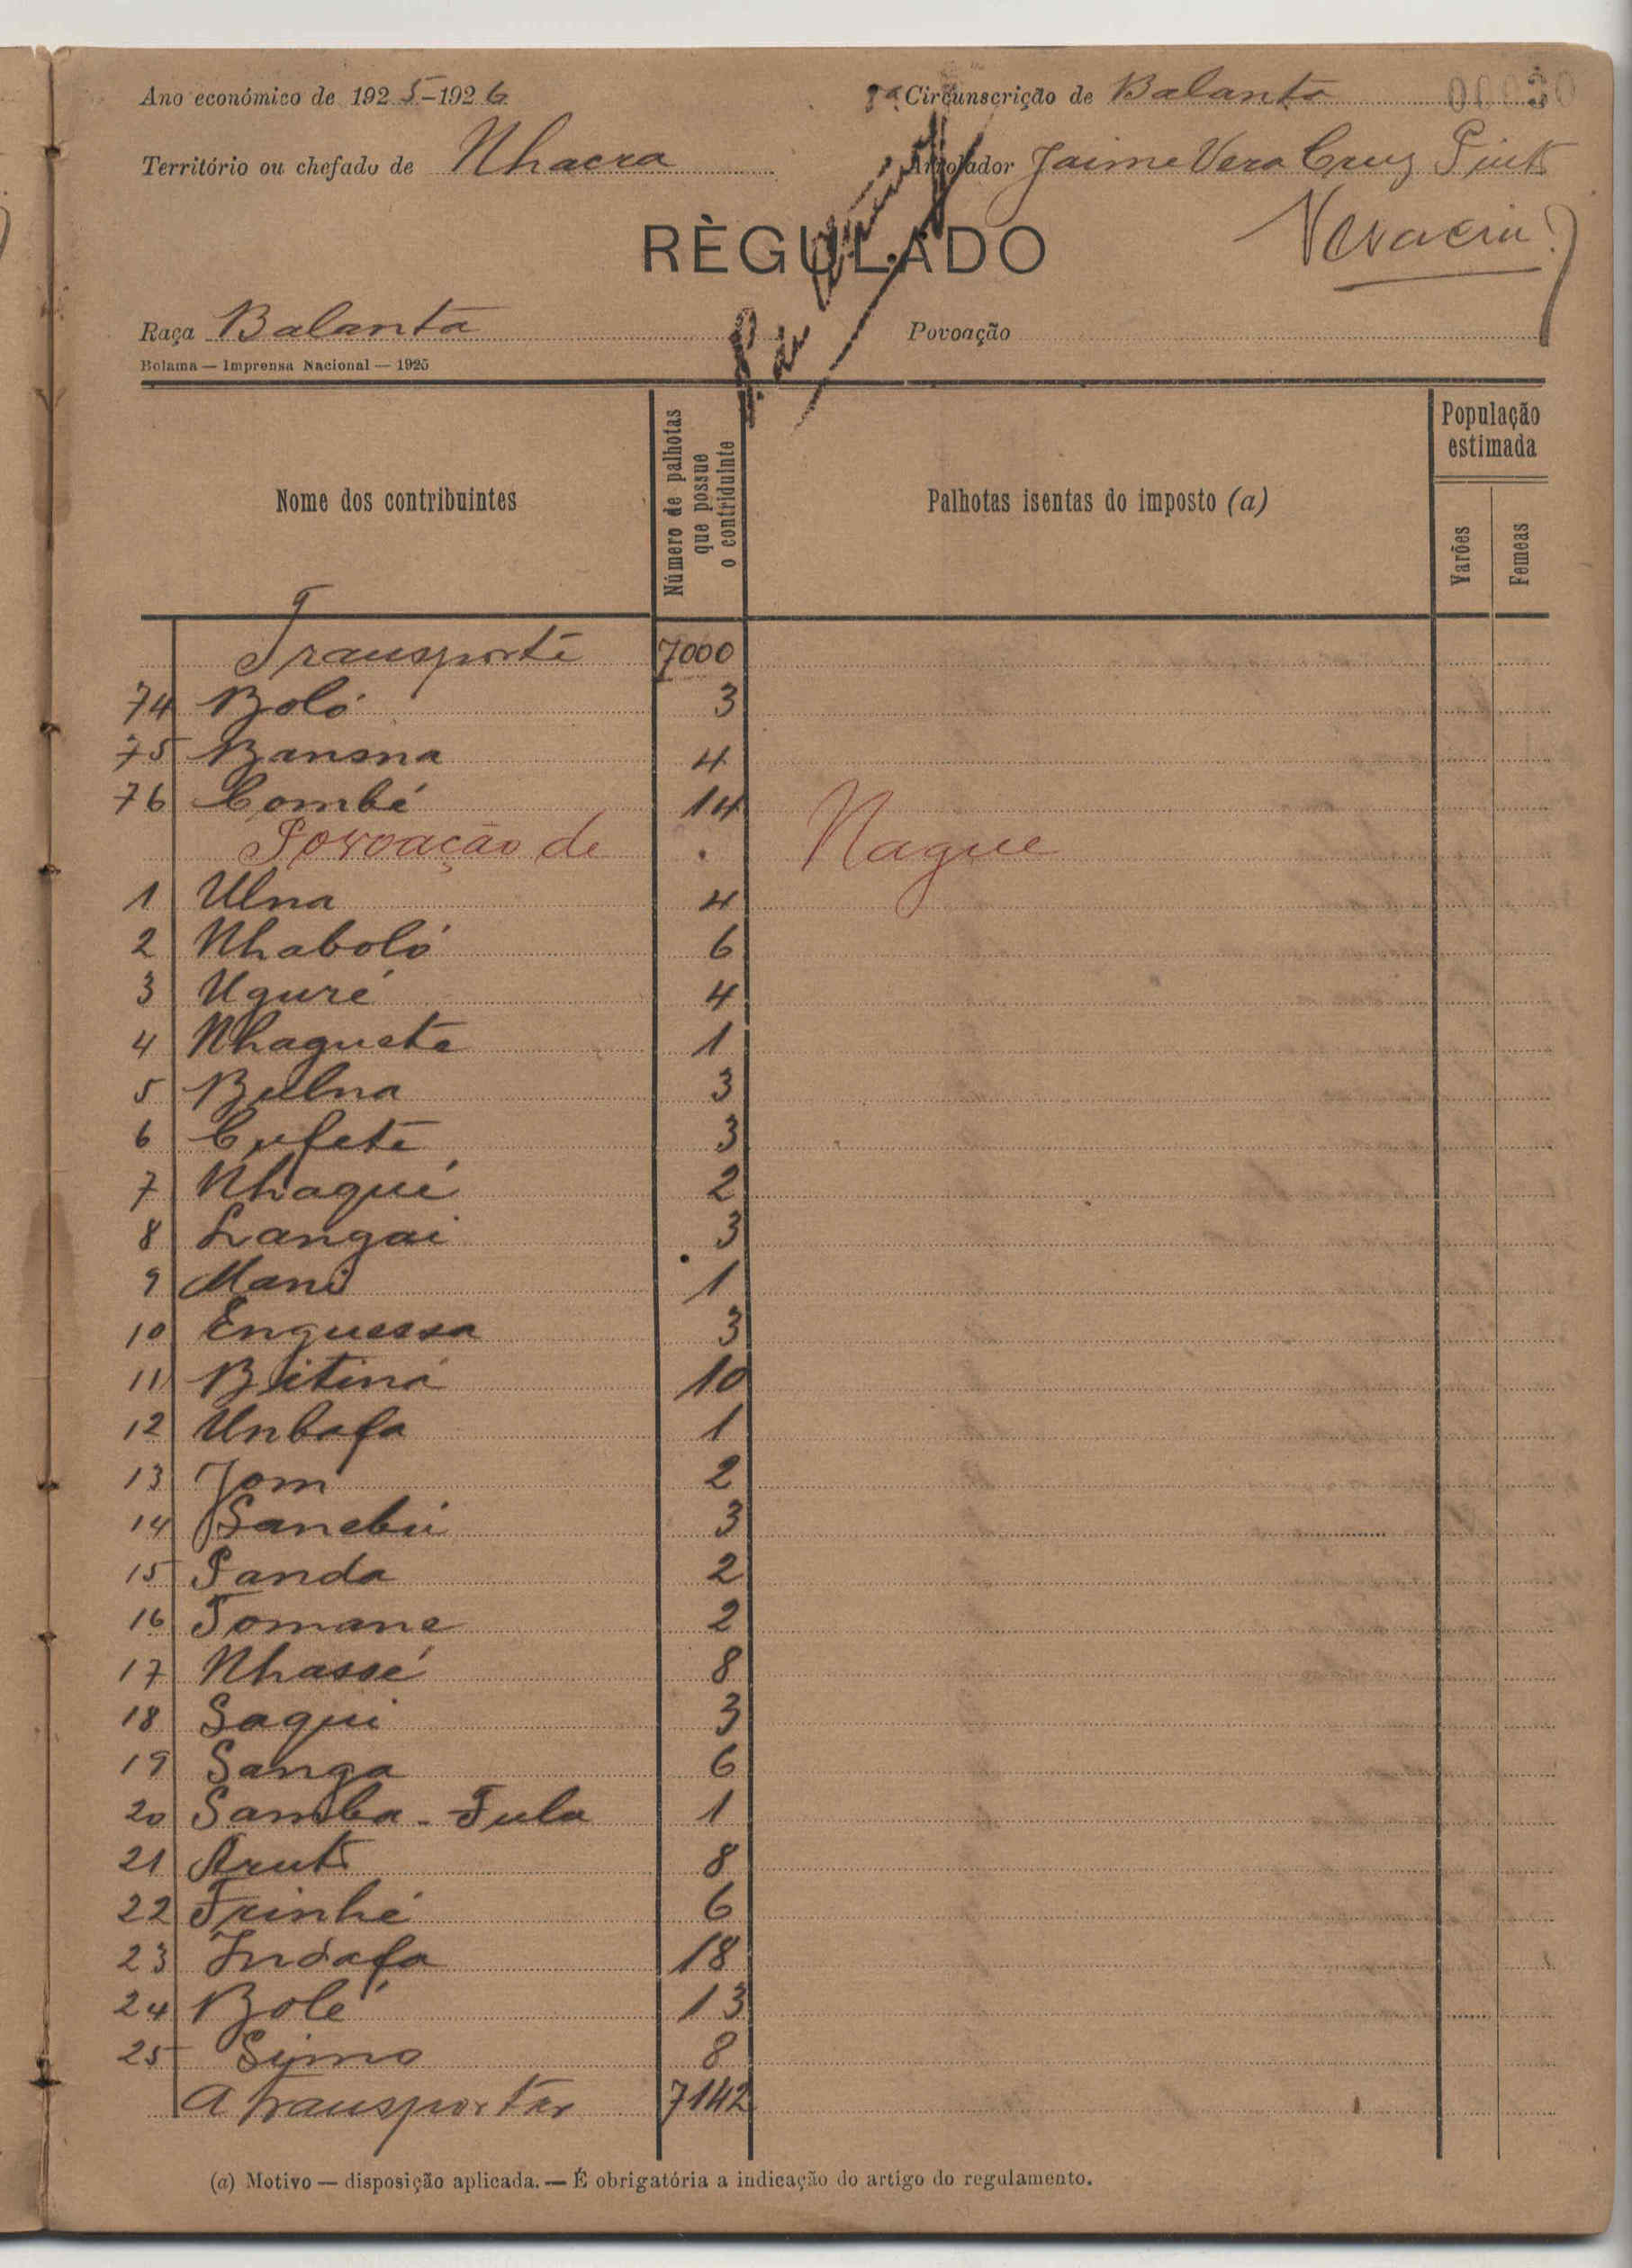 Ano económico de 1925-1926
8ª Circunscrição de Balanta
Território ou chefado de Nhacra
Arrolador Jaime Vera Cruz Pinto
RÈGULADO
Raça Balanta
Povoação
Bolama — Imprensa Nacional — 1925
Nome dos contribuintes
Número de palhotas que possue o contriduinte
Palhotas isentas do imposto (a)
População estimada
Varões
Femeas
Transporte 7000
74 Boló 3
75 Bansna 4
76 Combé 14
Povoação de Nague
1 Ulna 4
2 Nhaboló 6
3 Uguré 4
4 Nhaguete 1
5 Bulna 3
6 Cufete 3
7 Nhaquí 2
8 Langai 3
9 Mani 1
10 Enguessa 3
11 Bitiná 10
12 Unbafa 1
13 Jom 2
14 Sanebú 3
15 Panda 2
16 Tomane 2
17 Nhassé 8
18 Saqui 3
19 Sanga 6
20 Samba-Fula 1
21 Aruts 8
22 Frinhé 6
23 Indafa 18
24 Bolé 13
25 Simo 8
A transportar 7142
(a) Motivo — disposição aplicada. — É obrigatória a indicação do artigo do regulamento.